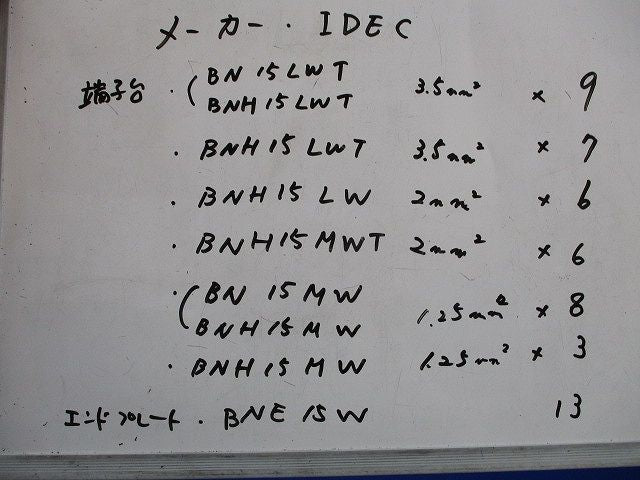 メーカー・IDEC
端子台・(BN15LWT
BNH15LWT 3.5mm² × 9
・BNH15LWT 3.5mm² × 7
・BNH15LW 2mm² × 6
・BNH15MWT 2mm² × 6
・(BN15MW
BNH15MW 1.25mm² × 8
・BNH15MW 1.25mm² × 3
エンドプレート・BNE15W 13